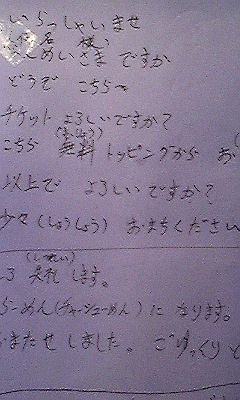 いらっしゃいませ
何名様
なんめいさま ですか
どうぞ こちらへ
チケット よろしいですか?
(むりょう)
こちら 無料 トッピングから お
以上で よろしいですか?
少々(しょうしょう) おまちください
(しつれい)
失礼 します。
らーめん(チャーシューめん)に なります。
おまたせ しました。 ごゆっくり ど